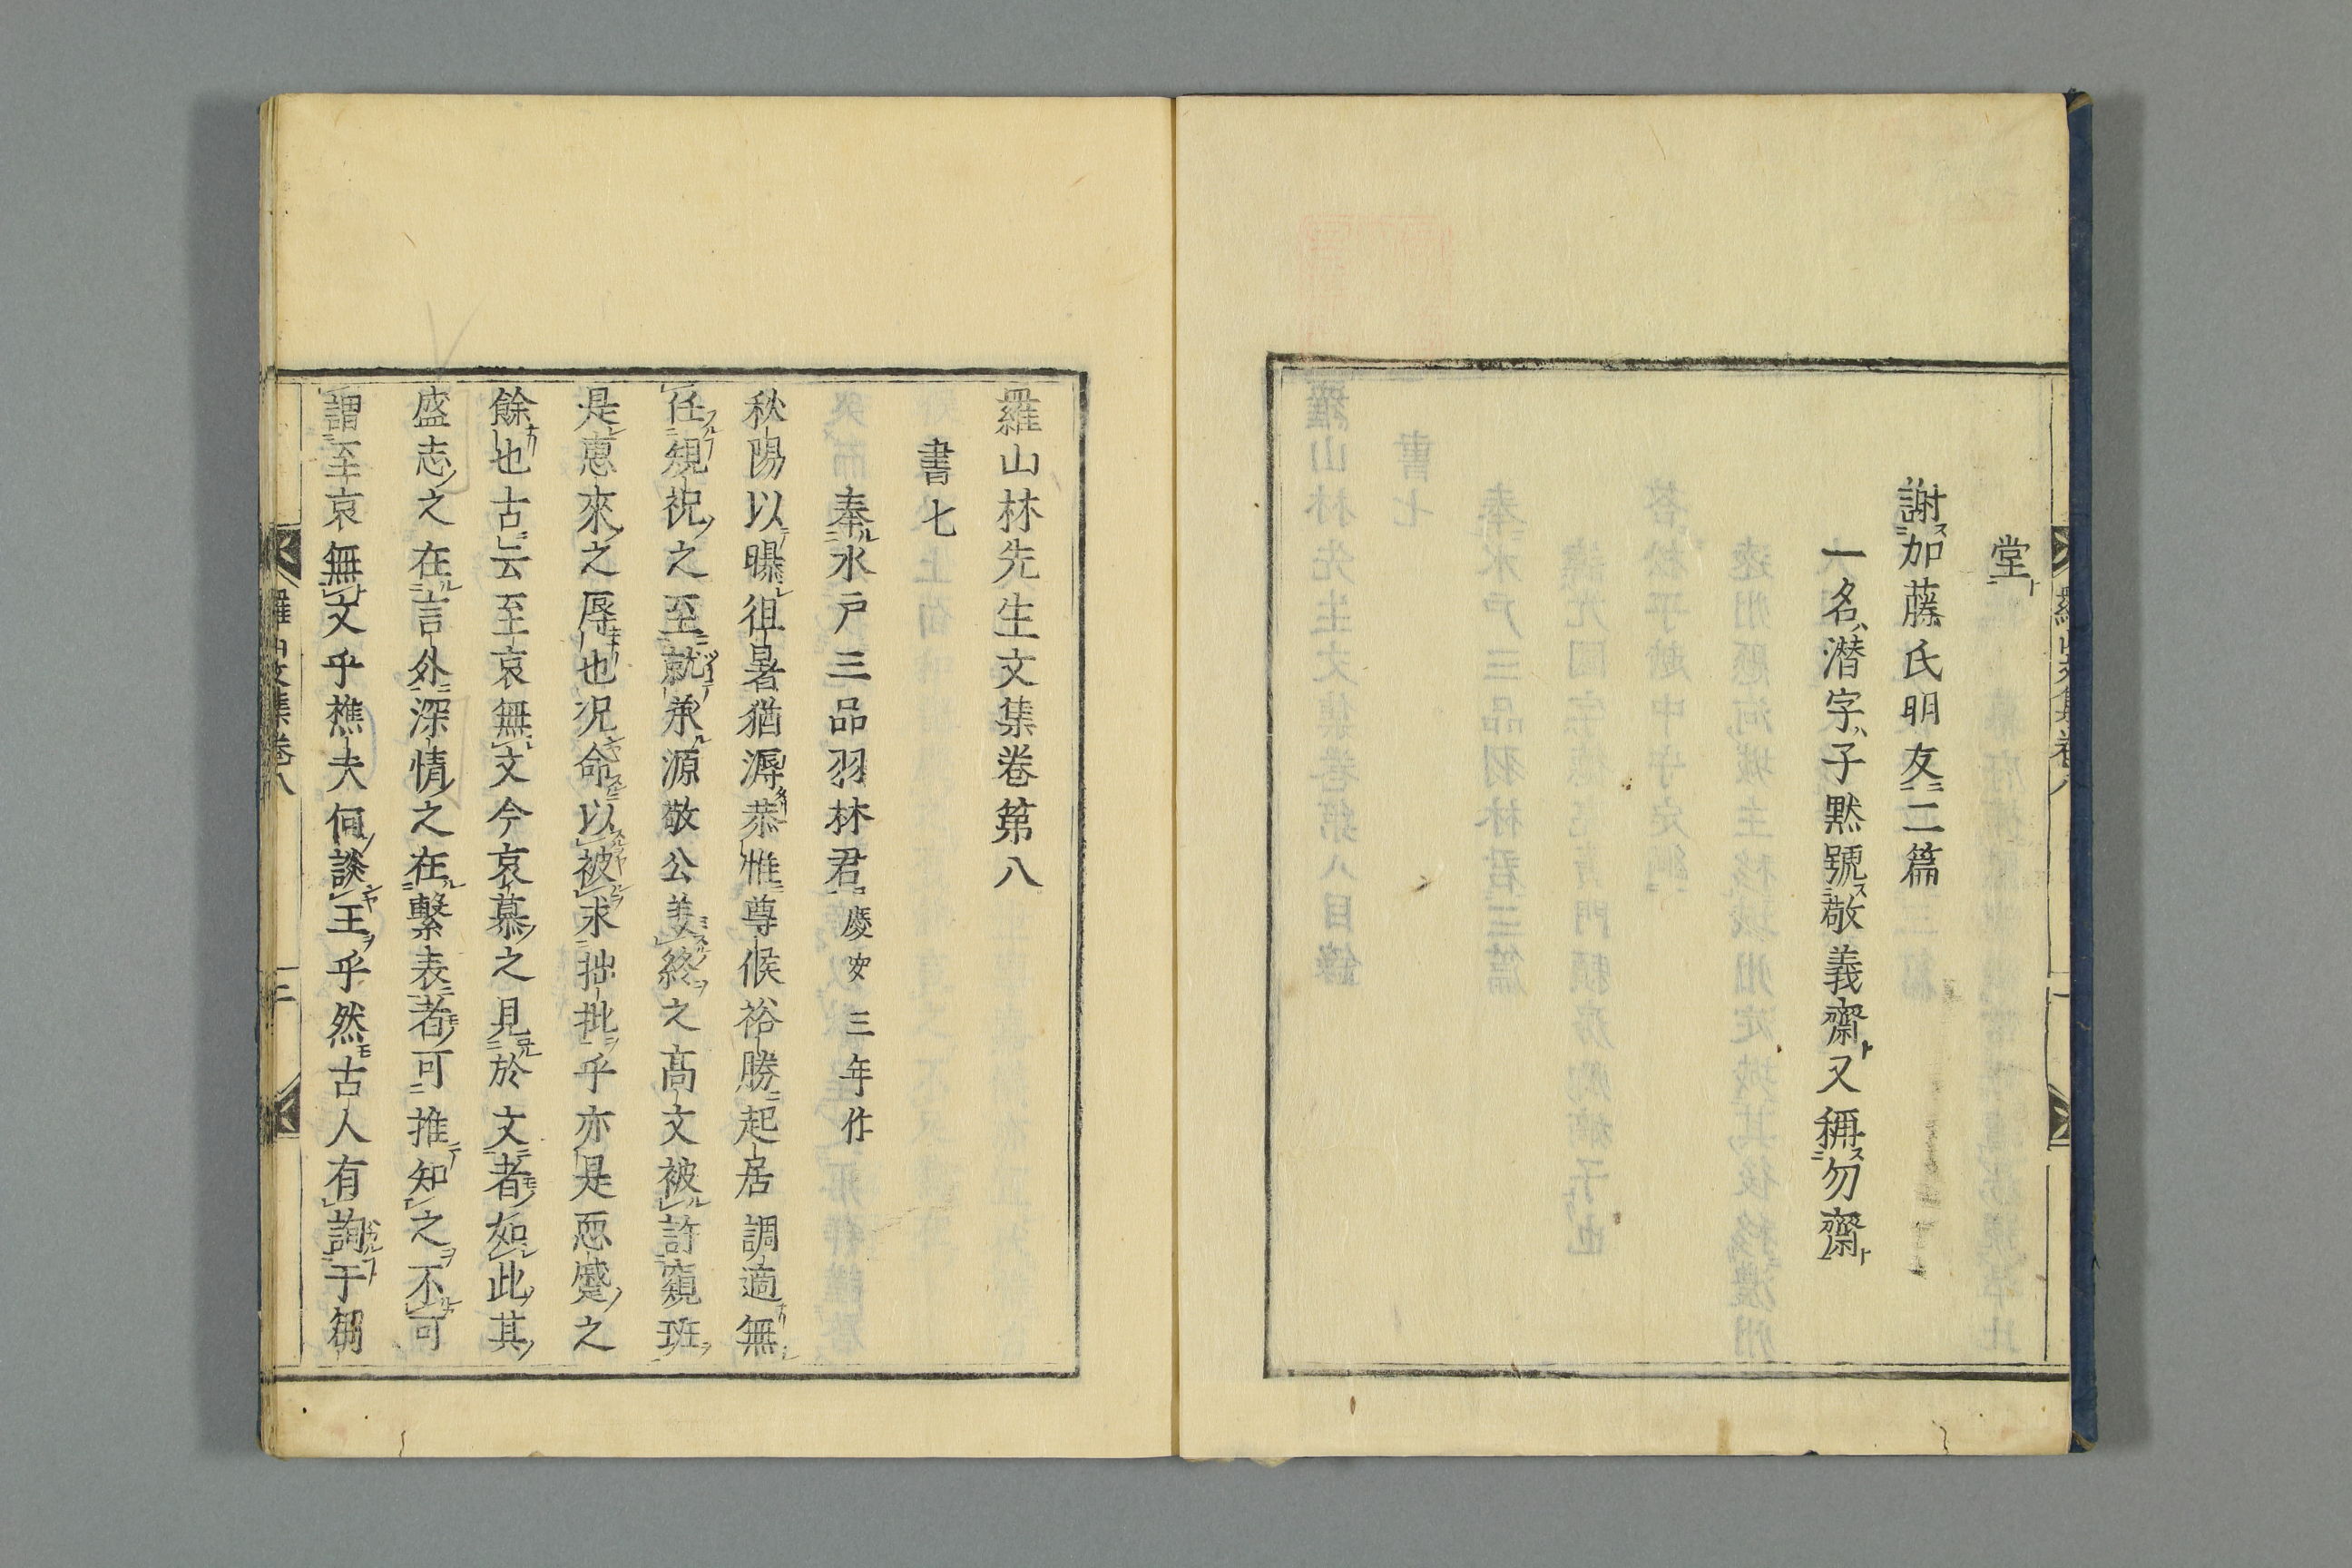 堂
謝加藤氏明友二篇
一名潜字子默號敬義齋又稱勿齋
羅山林先生文集卷第八
書七
奉水戸三品羽林君慶安三年作
秋陽以曝徂暑猶溽恭惟尊候裕勝起居調適無
任覶祝之至就承源敬公姜終之高文被許窺班
是惠來之辱也況命以被求拙批乎亦是恧蹙之
餘也古云至哀無文今哀慕之見於文者如此其
盛志之在言外深情之在繫表者可推知之不可
謂至哀無文乎樵夫何談王乎然古人有詢于芻
羅山文集卷八
二